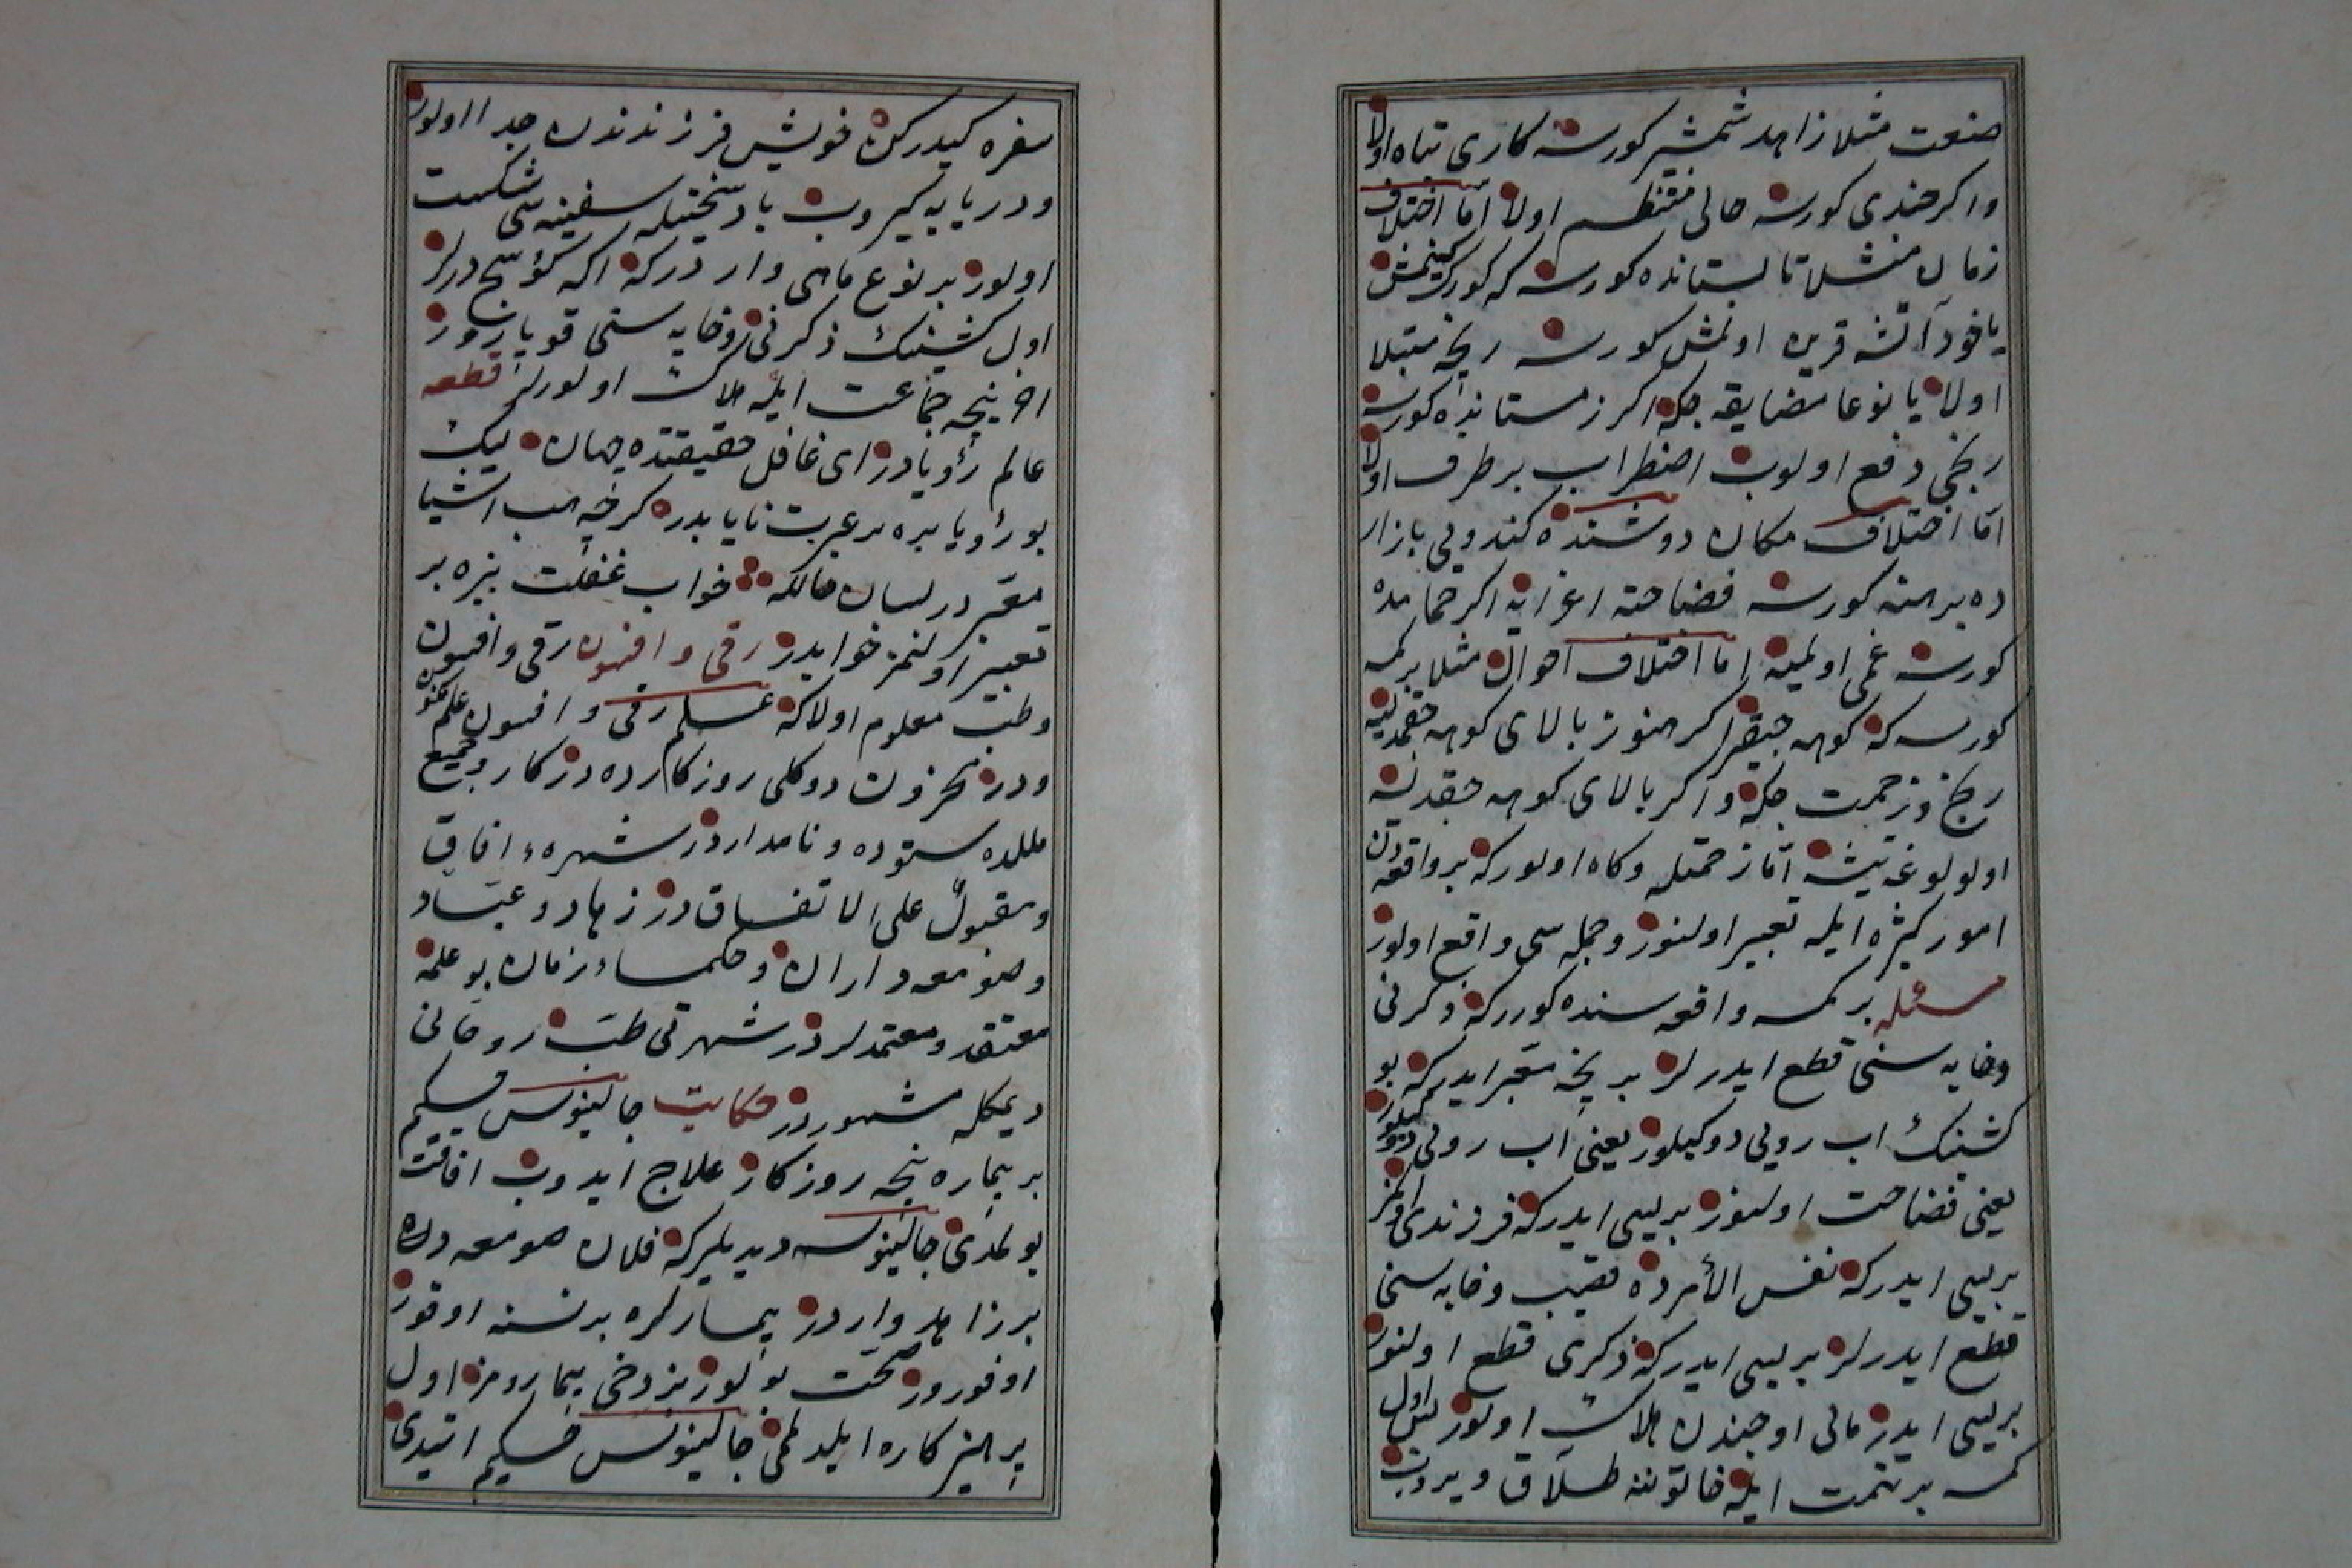 صنعت مثلا زاهد شمشیر کورسه کاری تباه اولا
واکر جندی کورسه حالی منتظم اولا اما اختلاف
زمان مثلا تابستانده کورسه که کورک کیمش
یاخود آتشه قرین اولمش کورسه رنجه مبتلا
اولا یا نوعا مضایقه چکه اکر زمستانده کورسه
رنجی دفع اولوب اضطراب برطرف اولا
اما اختلاف مکان دوشنده کندویی بازار
ده برهنه کورسه فضاحته اغرایه اکر حمامده
کورسه غمی اولمیه اما اختلاف احوال مثلا بر کمسه
کورسه که کوهه چیقر اکر هنوز بالای کوهه چقمدیسه
رنج و زحمت چکه واکر بالای کوهه چقدیسه
اولولوغه یتیشه اما زحمتله وکاه اولور که بر واقعه دن
امور کثیره ایله تعبیر اولنور وجمله سی واقع اولور
مسئله بر کمسه واقعه سنده کورر که ذکرنی
وخایه سنی قطع ایدرلر بر نیجه معبر ایدر که بو
کشینک اب رویی دوکیلور یعنی اب رویی دوکیلور
یعنی فضاحت اولنور بریسی ایدر که فرزندی اولمز
بریسی ایدر که نفس الأمرده قضیب وخایه سنی
قطع ایدرلر بریسی ایدر که ذکری قطع اولنور
بریسی ایدر مالی اوجندن هلاک اولور پس اول
کمسه بر تهمت ایله خاتوننه طلاق ویروب
سفره کیدرکن خویش فرزندندن جدا اولور
ودریایه کیروب باد سختیله سفینه سی شکست
اولور بر نوع ماهی واردر که اکه کوسج درلر
اول کشینک ذکرنی وخایه سنی قوپارور
اخر نیجه جماعت ایله هلاک اولورلر قطعه
عالم رؤیادر ای غافل حقیقتده جهان لیک
بو رؤیا بره بر عبرت نایابدر کرچه هب اشیا
معبر در لسان حالله خواب غفلت بزه بر
تعبیر اولنمز خوابدر رقی وافسون رقی وافسون
وطب معلوم اولا که علم رقی وافسون علم مکنون
ودر مخزون دوکلی روزکارده درکار وجمیع
مللده ستوده ونامداردر شهره ء افاق
ومقبول علی الاتفاق در زهاد وعباد
وصومعه داران وحکماء زمان بو علمه
معتقد ومعتمدلردر شهرتی طب روحانی
دیمکله مشهوردر حکایت جالینوس حکیم
بر بیماره نیجه روزکار علاج ایدوب افاقت
بولمدی جالینوسه دیدیلر که فلان صومعه ده
بر زاهد واردر بیمارلره بر نسنه اوقور
اوفورور صحت بولور بز دخی بیمارومز اول
پرهیزکاره ایلدلم جالینوس حکیم ایتدی